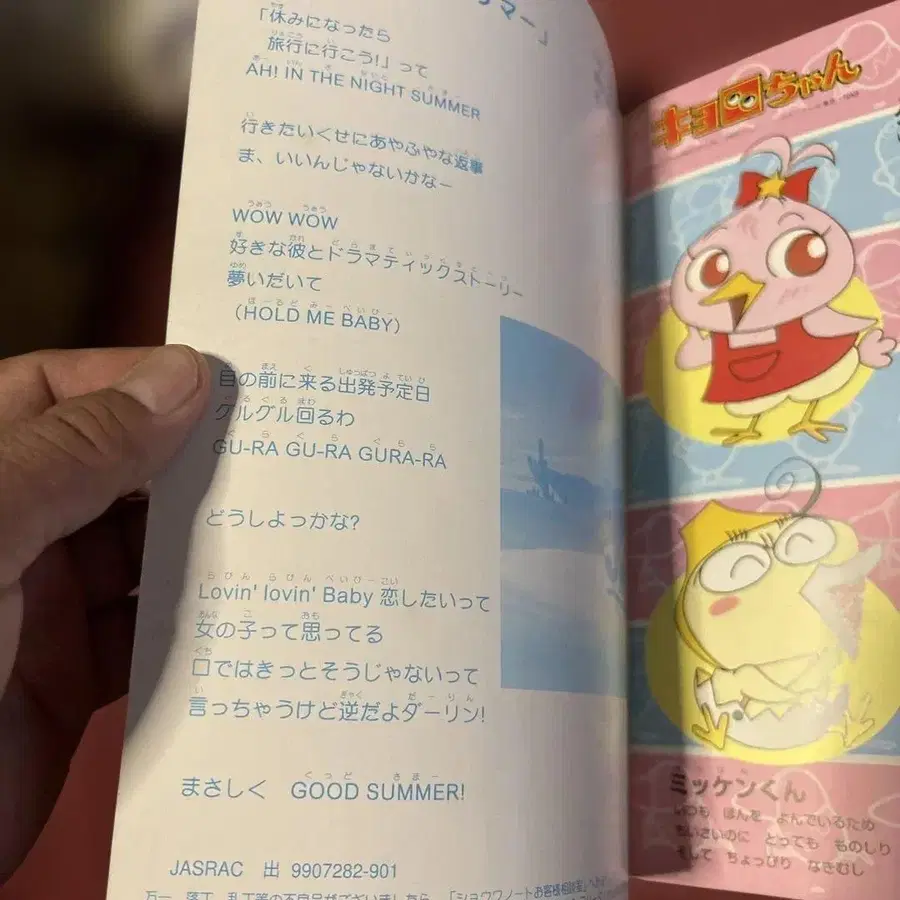 マー」
「休みになったら
旅行に行こう!」って
AH! IN THE NIGHT SUMMER
行きたいくせにあやふやな返事
ま、いいんじゃないかなー
WOW WOW
好きな彼とドラマティックストーリー
夢いだいて
（HOLD ME BABY）
目の前に来る出発予定日
グルグル回るわ
GU-RA GU-RA GURA-RA
どうしよっかな?
Lovin' lovin' Baby 恋したいって
女の子って思ってる
口ではきっとそうじゃないって
言っちゃうけど逆だよダーリン!
まさしく GOOD SUMMER!
JASRAC 出 9907282-901
万一、落丁、乱丁等の不良品がございましたら、「ショウワノートお客様相談室」へ
キョロちゃん
ミッケンくん
いつも ほんを よんでいるため
ちいさいのに とっても ものしり
そして ちょっぴり なきむし